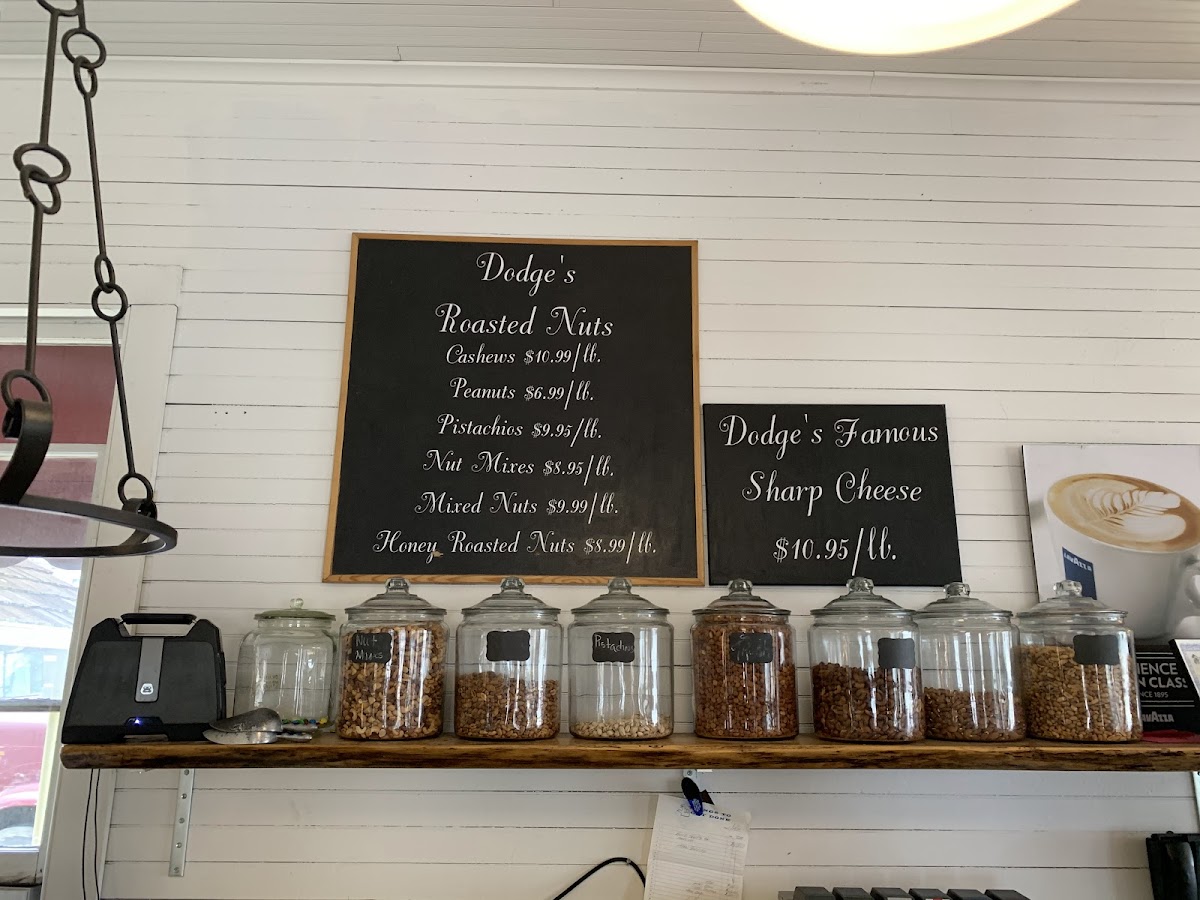 Dodge's
Roasted Nuts
Cashews $10.99/lb.
Peanuts $6.99/lb.
Pistachios $9.95/lb.
Nut Mixes $8.95/lb.
Mixed Nuts $9.99/lb.
Honey Roasted Nuts $8.99/lb.
Dodge's Famous
Sharp Cheese
$10.95/lb.
LAVAZZA
Nut
Mixes
Pistachios
IENCE
N CLAS
NCE 1895
LAVAZZA